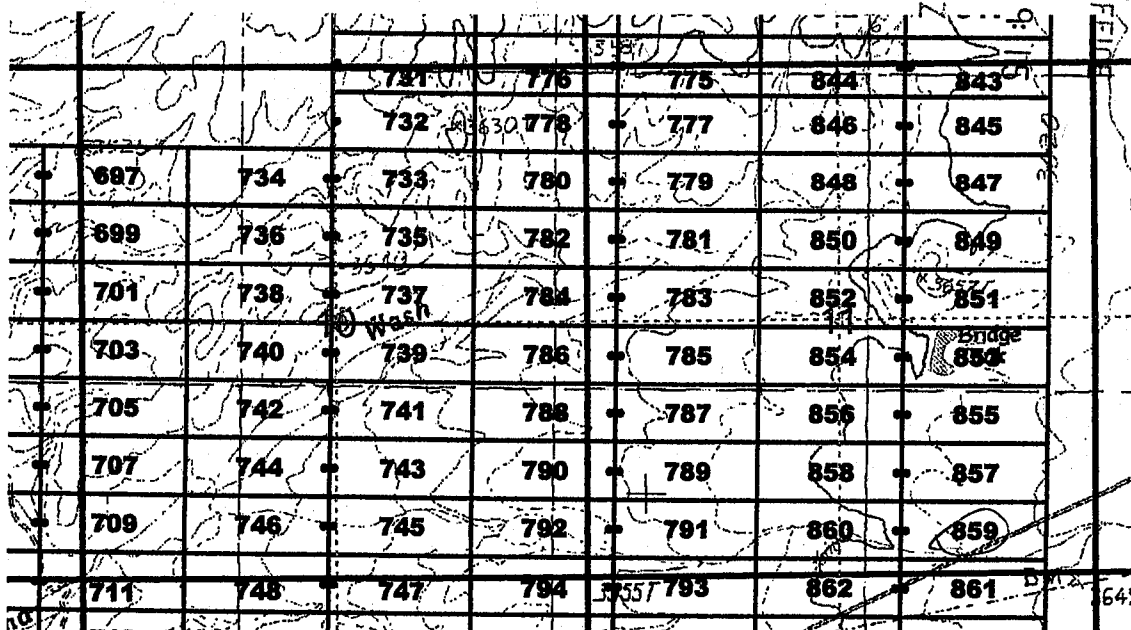 731 776 775 844 843
732 3630T 778 777 846 845
697 734 733 780 779 848 847
699 736 735 782 781 850 849
701 738 737 784 783 852 851
Wash
Bridge
703 740 739 786 785 854 853
705 742 741 788 787 856 855
707 744 743 790 789 858 857
709 746 745 792 791 860 859
711 748 747 794 3555T 793 862 861